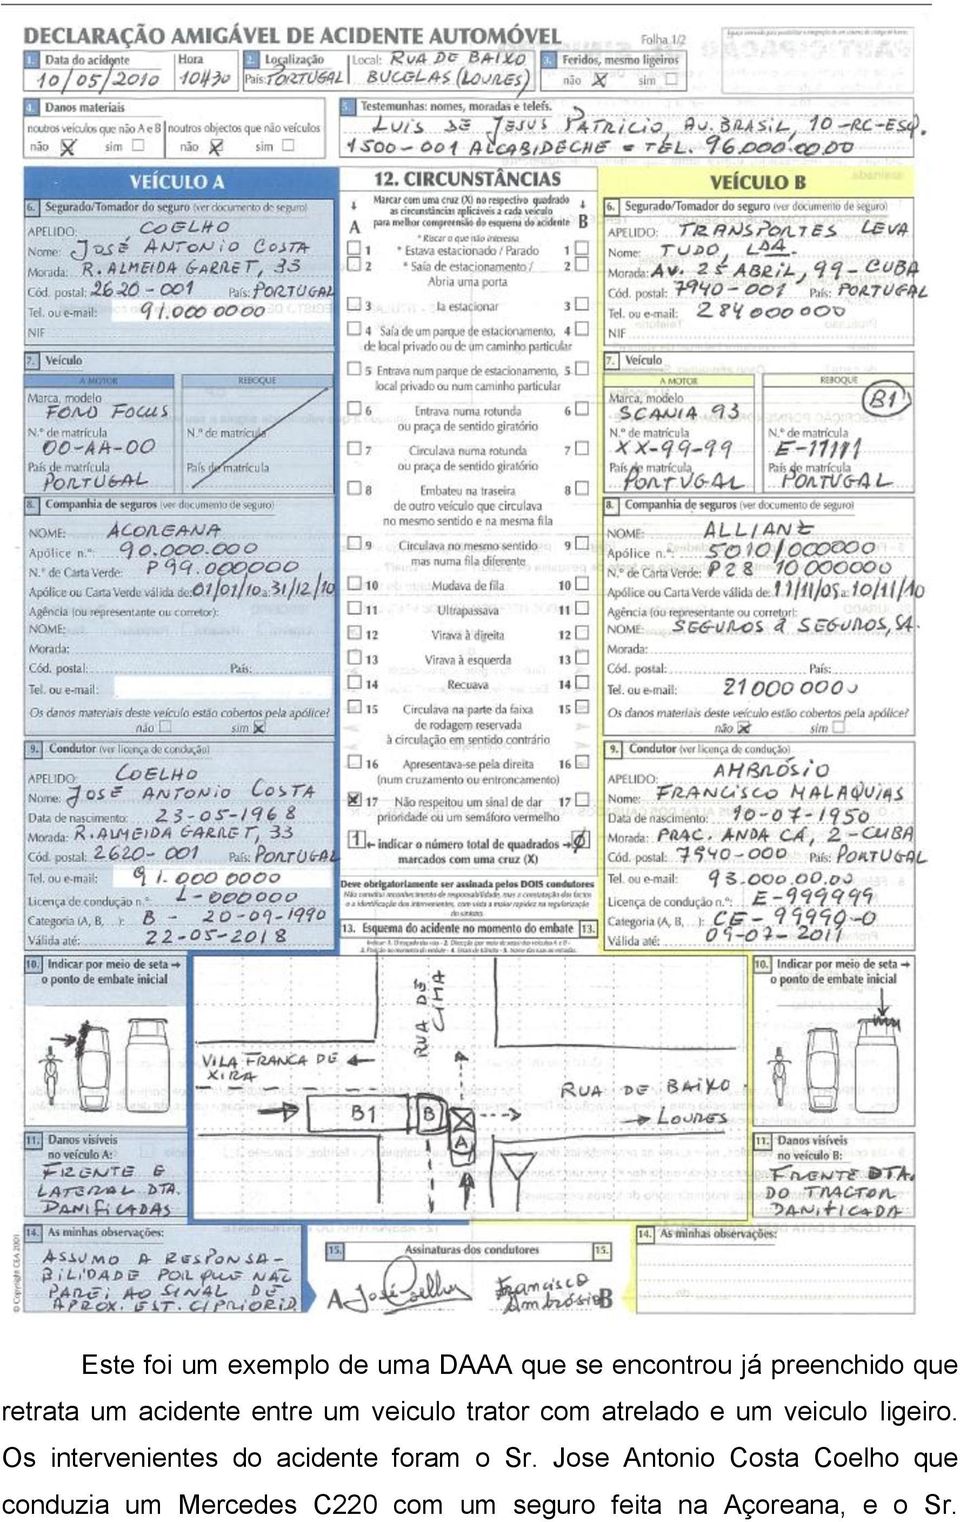 DECLARAÇÃO AMIGÁVEL DE ACIDENTE AUTOMÓVEL Folha 1/2
1. Data do acidente Hora 2. Localização Local: RUA DE BAIXO 3. Feridos, mesmo ligeiros
10/05/2010 10H30 País: PORTUGAL BUCELAS (LOURES) não X sim
4. Danos materiais 5. Testemunhas: nomes, moradas e telefs.
noutros veículos que não A e B noutros objectos que não veículos LUIS DE JESUS PATRICIO, AV. BRASIL, 10 -RC-ESQ.
não X sim não X sim 1500-001 ALCABIDECHE - TEL. 96.000.00.00
VEÍCULO A
6. Segurado/Tomador do seguro (ver documento de seguro)
APELIDO: COELHO
Nome: JOSÉ ANTONIO COSTA
Morada: R. ALMEIDA GARRET, 33
Cód. postal: 2620-001 País: PORTUGAL
Tel. ou e-mail: 91.000 0000
NIF
7. Veículo
A MOTOR REBOQUE
Marca, modelo
FORD FOCUS
N.º de matrícula N.º de matrícula
00-AA-00
País de matrícula País de matrícula
PORTUGAL
8. Companhia de seguros (ver documento de seguro)
NOME: ACOREANA
Apólice n.º: 90.000.000
N.º de Carta Verde: P99.000000
Apólice ou Carta Verde válida de: 01/01/10 a: 31/12/10
Agência (ou representante ou corretor):
NOME:
Morada:
Cód. postal: País:
Tel. ou e-mail:
Os danos materiais deste veículo estão cobertos pela apólice?
não sim X
9. Condutor (ver licença de condução)
APELIDO: COELHO
Nome: JOSÉ ANTONIO COSTA
Data de nascimento: 23-05-1968
Morada: R. ALMEIDA GARRET, 33
Cód. postal: 2620-001 País: PORTUGAL
Tel. ou e-mail: 91.000 0000
Licença de condução n.º: L-000000
Categoria (A, B, ...): B - 20-09-1990
Válida até: 22-05-2018
10. Indicar por meio de seta → o ponto de embate inicial
11. Danos visíveis
no veículo A:
FRENTE E
LATERAL DTA.
DANIFICADAS
14. As minhas observações:
ASSUMO A RESPONSA-
BILIDADE POR QUE NÃO
PAREI AO SINAL DE
APROX. EST. C/PRIORID
12. CIRCUNSTÂNCIAS
Marcar com uma cruz (X) no respectivo quadrado
as circunstâncias aplicáveis a cada veículo
A para melhor compreensão do esquema do acidente B
* Riscar o que não interessa
1 * Estava estacionado / Parado 1
2 * Saía de estacionamento / 2
Abria uma porta
3 Ia estacionar 3
4 Saía de um parque de estacionamento, 4
de local privado ou de um caminho particular
5 Entrava num parque de estacionamento, 5
local privado ou num caminho particular
6 Entrava numa rotunda 6
ou praça de sentido giratório
7 Circulava numa rotunda 7
ou praça de sentido giratório
8 Embateu na traseira 8
de outro veículo que circulava
no mesmo sentido e na mesma fila
9 Circulava no mesmo sentido 9
mas numa fila diferente
10 Mudava de fila 10
11 Ultrapassava 11
12 Virava à direita 12
13 Virava à esquerda 13
14 Recuava 14
15 Circulava na parte da faixa 15
de rodagem reservada
à circulação em sentido contrário
16 Apresentava-se pela direita 16
(num cruzamento ou entroncamento)
X 17 Não respeitou um sinal de dar 17
prioridade ou um semáforo vermelho
1 ← indicar o número total de quadrados → 0
marcados com uma cruz (X)
Deve obrigatoriamente ser assinada pelos DOIS condutores
13. Esquema do acidente no momento do embate 13.
RUA DE CIMA
VILA FRANCA DE
XIRA
RUA DE BAIXO
B1 B → LOURES
A
15. Assinaturas dos condutores 15.
A José Coelho Francisco Ambrósio B
VEÍCULO B
6. Segurado/Tomador do seguro (ver documento de seguro)
APELIDO: TRANSPORTES LEVA
Nome: TUDO, LDA.
Morada: AV. 25 ABRIL, 99-CUBA
Cód. postal: 7940-001 País: PORTUGAL
Tel. ou e-mail: 284 000 000
NIF
7. Veículo
A MOTOR REBOQUE
Marca, modelo B1
SCANIA 93
N.º de matrícula N.º de matrícula
XX-99-99 E-11111
País de matrícula País de matrícula
PORTUGAL PORTUGAL
8. Companhia de seguros (ver documento de seguro)
NOME: ALLIANZ
Apólice n.º: 5010/000000
N.º de Carta Verde: P28 10 0000000
Apólice ou Carta Verde válida de: 11/11/05 a: 10/11/10
Agência (ou representante ou corretor):
NOME: SEGUROS & SEGUROS, SA.
Morada:
Cód. postal: País:
Tel. ou e-mail: 21000 0000
Os danos materiais deste veículo estão cobertos pela apólice?
não X sim
9. Condutor (ver licença de condução)
APELIDO: AMBRÓSIO
Nome: FRANCISCO MALAQUIAS
Data de nascimento: 10-07-1950
Morada: PRAC. ANDA CÁ, 2-CUBA
Cód. postal: 7940-000 País: PORTUGAL
Tel. ou e-mail: 93.000.00.00
Licença de condução n.º: E-999999
Categoria (A, B, ...): CE-99990-0
Válida até: 09-07-2011
10. Indicar por meio de seta → o ponto de embate inicial
11. Danos visíveis
no veículo B:
FRENTE DTA.
DO TRACTOR
DANIFICADA
14. As minhas observações:
© Copyright CEA 2001
Este foi um exemplo de uma DAAA que se encontrou já preenchido que
retrata um acidente entre um veiculo trator com atrelado e um veiculo ligeiro.
Os intervenientes do acidente foram o Sr. Jose Antonio Costa Coelho que
conduzia um Mercedes C220 com um seguro feita na Açoreana, e o Sr.